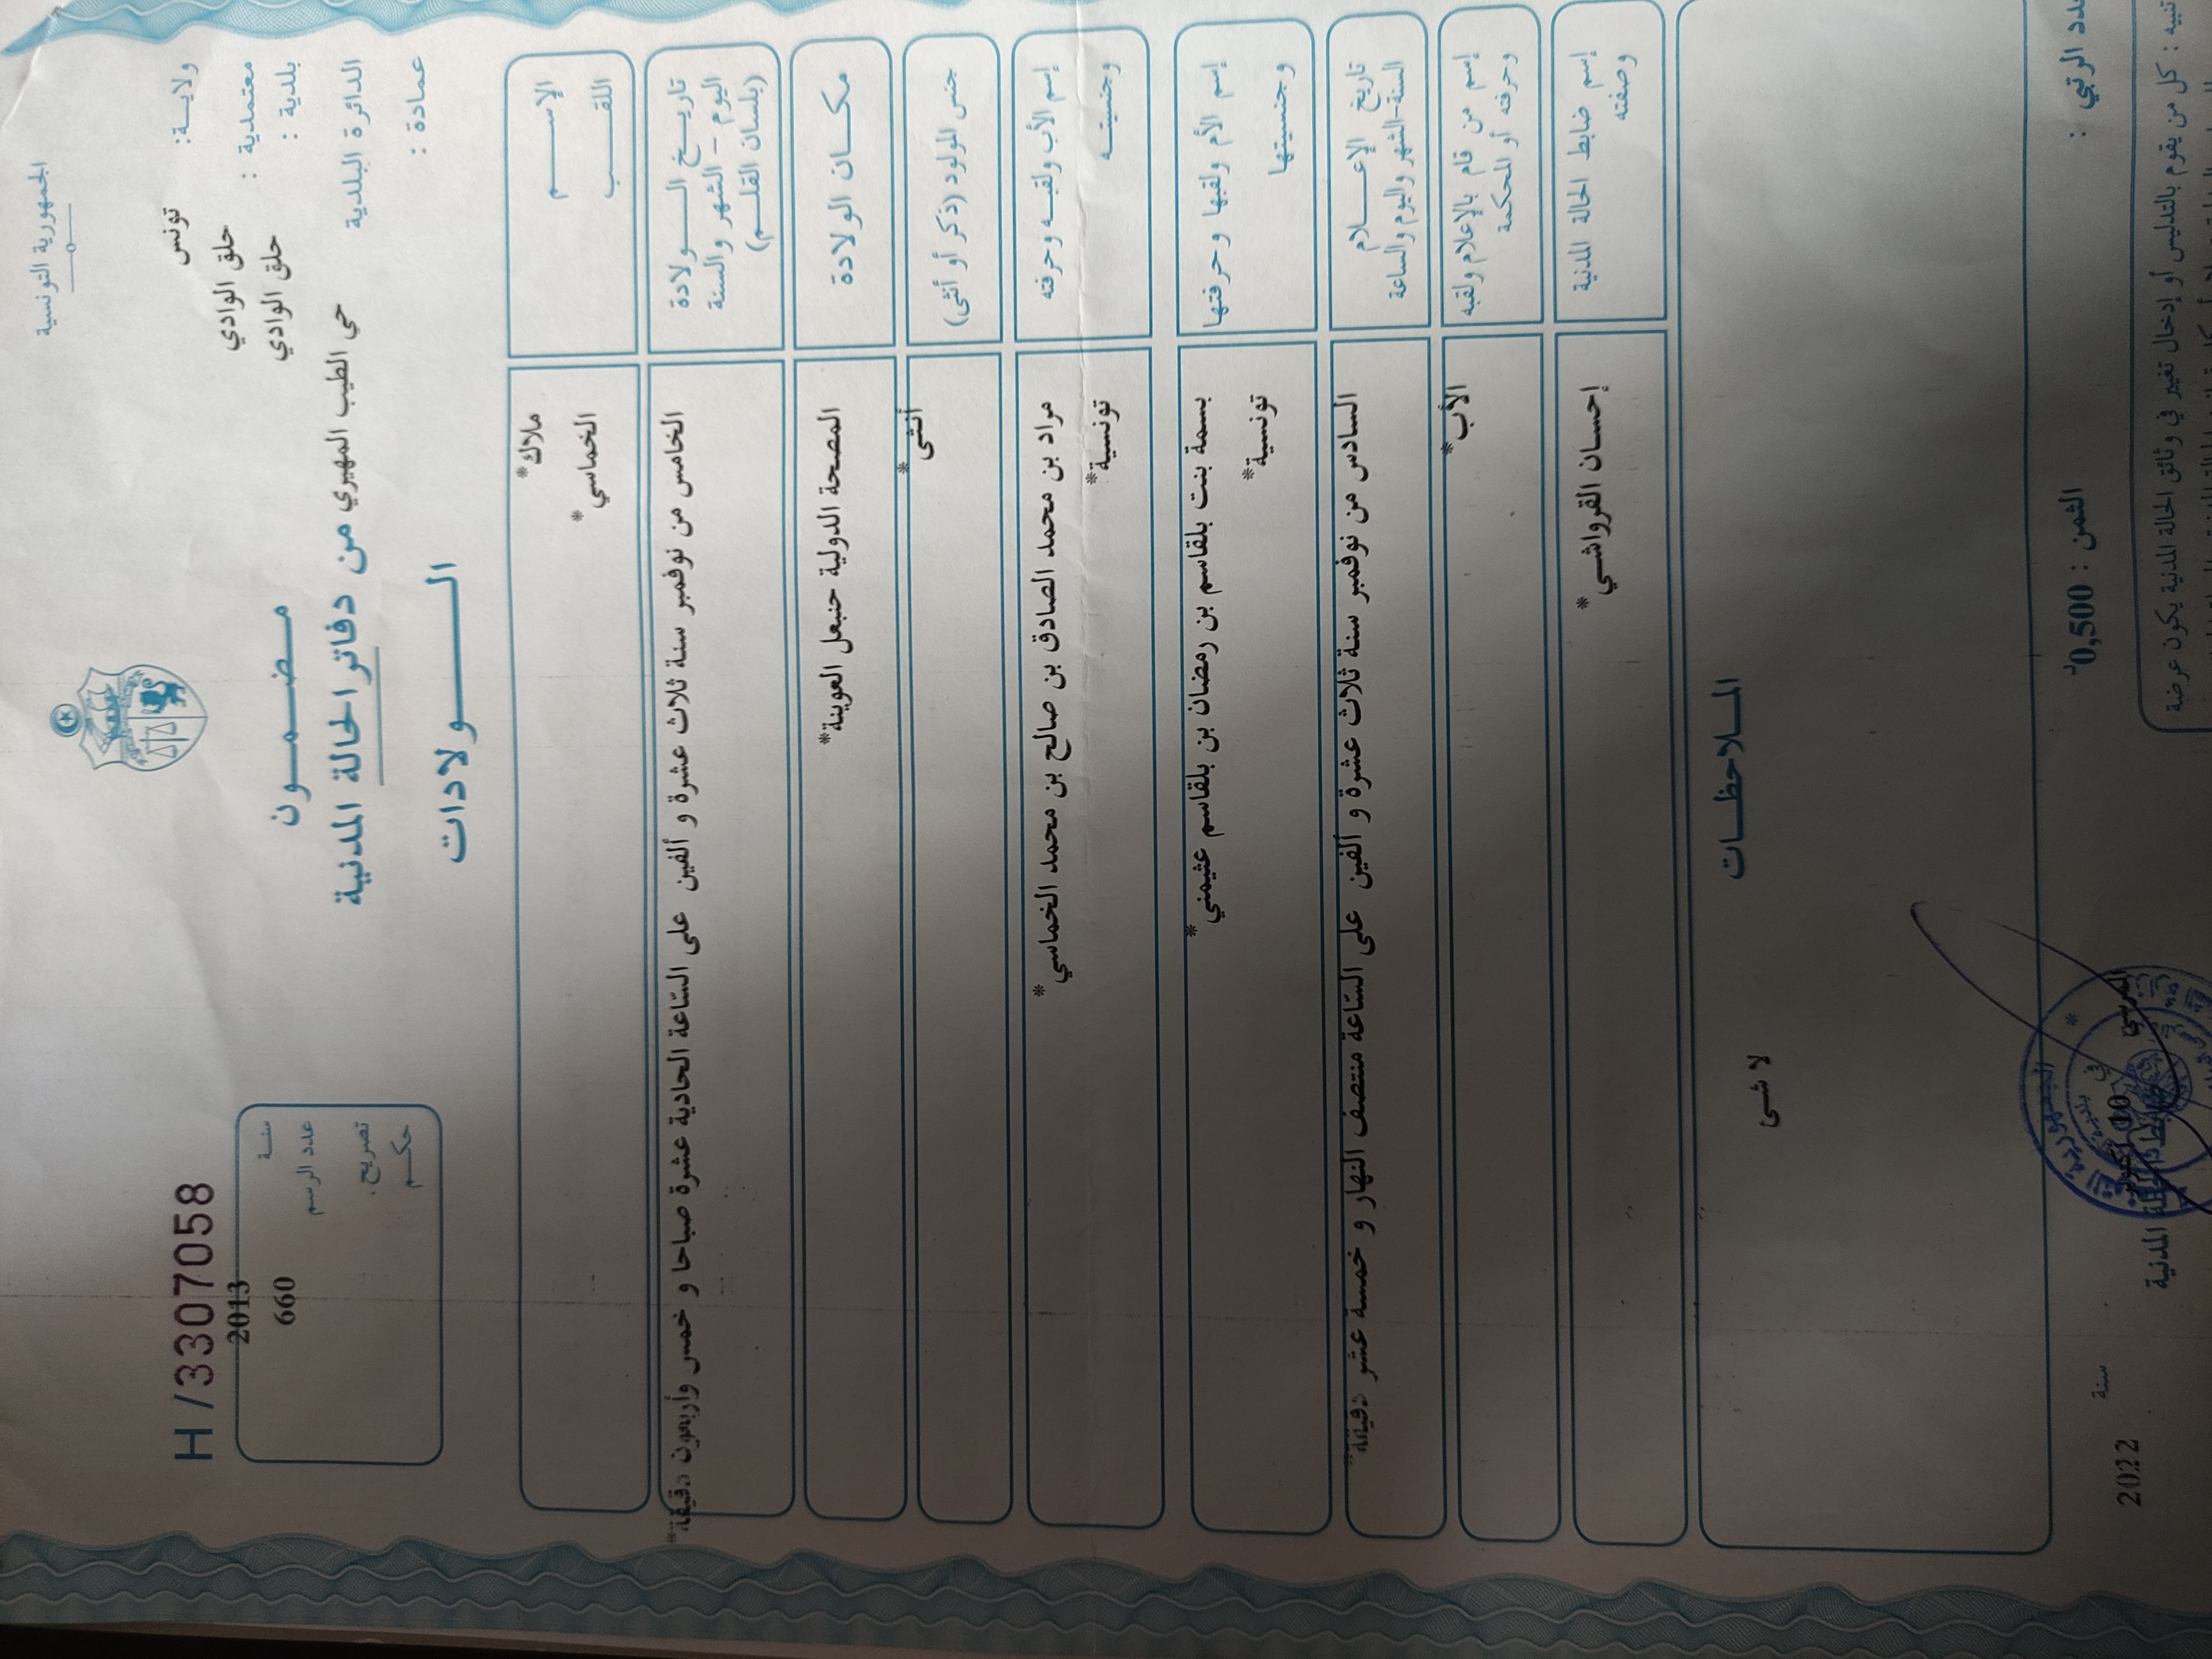 الجمهورية التونسية
H/3307058
ولايـــة: تونس
معتمدية : حلق الوادي
بلدية : حلق الوادي
الدائرة البلدية حي الطيب المهيري
عمادة :
مـضـمـــون
من دفاتر الحالة المدنية
الــــولادات
سنـــة 2013
عدد الرسم 660
تصريح.
حكـــم
الإســـــم ملاك*
اللقـــب الخماسي*
تاريـــخ الــــولادة
اليوم - الشهر والسنة
(بلسان القلـــم)
الخامس من نوفمبر سنة ثلاث عشرة و ألفين على الساعة الحادية عشرة صباحا و خمس وأربعون دقيقة*
مكـــان الولادة المصحة الدولية حنبعل العوينة*
جنس المولود (ذكر أو أنثى) أنثى*
إسم الأب ولقبـــه وحرفته مراد بن محمد الصادق بن صالح بن محمد الخماسي*
وجنسيتـــه تونسية*
إسم الأم ولقبها وحرفتها بسمة بنت بلقاسم بن رمضان بن بلقاسم عثيمني*
وجنسيتها تونسية*
تاريخ الإعـــــلام
السنة-الشهر واليوم والساعة
السادس من نوفمبر سنة ثلاث عشرة و ألفين على الساعة منتصف النهار و خمسة عشر دقيقة*
إسم من قام بالإعلام ولقبه
وحرفته أو المحكمة
الأب*
إسم ضابط الحالة المدنية
وصفته
إحسان القرواشي*
المـــلاحظـــات
لا شئ
عدد الرتبي :
الثمن : 0,500د
في 10 أكتوبر
سنة 2022
ضابط الحالة المدنية
تنبيه : كل من يقوم بالتدليس أو إدخال تغيير في وثائق الحالة المدنية يكون عرضة